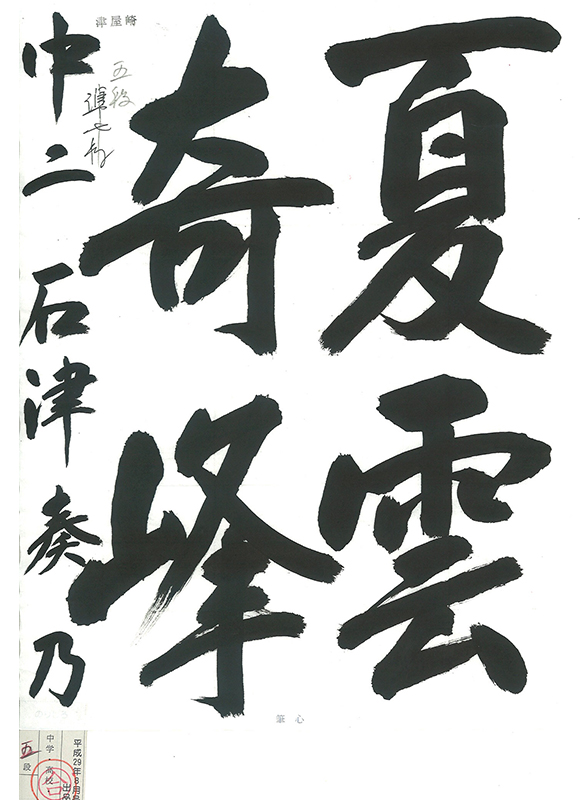 夏雲
奇峰
中二 石津奏乃
津屋崎
五段
心筆
平成29年8月
中学・高校
五段
合